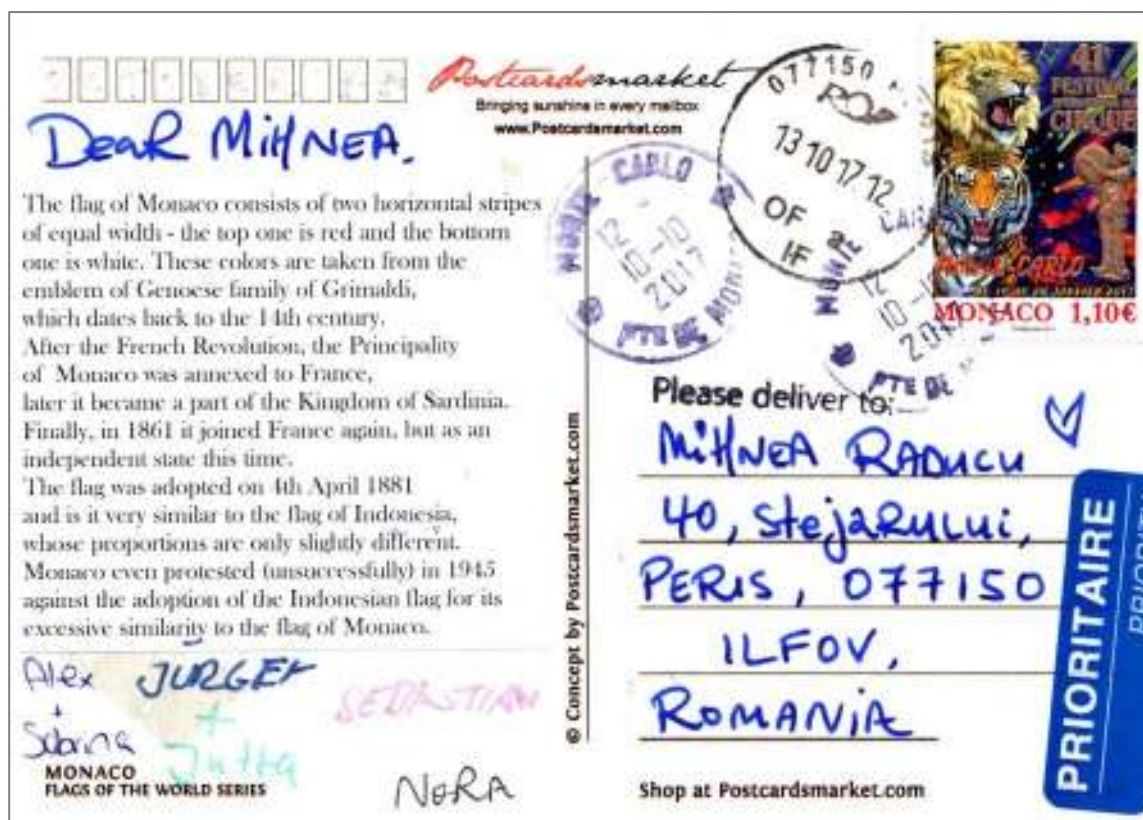 Postcardsmarket
Bringing sunshine in every mailbox
www.Postcardsmarket.com
Dear MiHNEA.
The flag of Monaco consists of two horizontal stripes
of equal width - the top one is red and the bottom
one is white. These colors are taken from the
emblem of Genoese family of Grimaldi,
which dates back to the 14th century.
After the French Revolution, the Principality
of Monaco was annexed to France,
later it became a part of the Kingdom of Sardinia.
Finally, in 1861 it joined France again, but as an
independent state this time.
The flag was adopted on 4th April 1881
and is it very similar to the flag of Indonesia,
whose proportions are only slightly different.
Monaco even protested (unsuccessfully) in 1945
against the adoption of the Indonesian flag for its
excessive similarity to the flag of Monaco.
Alex
+
Sabrina
JURGEN
+
Jutta
SEBASTIAN
NORA
MONACO
FLAGS OF THE WORLD SERIES
© Concept by Postcardsmarket.com
MONTE CARLO
12 - 10
10
2017
PTE DE MON
077150
13 10 17 12
OF
IF
MONTE CAR
12
10-1
2017
PTE DE M
41
FESTIVAL
CIRQUE
MONTE-CARLO
MONACO 1,10€
Please deliver to:
MiHNEA RADUCU
40, StejaRului,
PERIS, 077150
ILFOV,
ROMANiA
PRIORITAIRE
Shop at Postcardsmarket.com